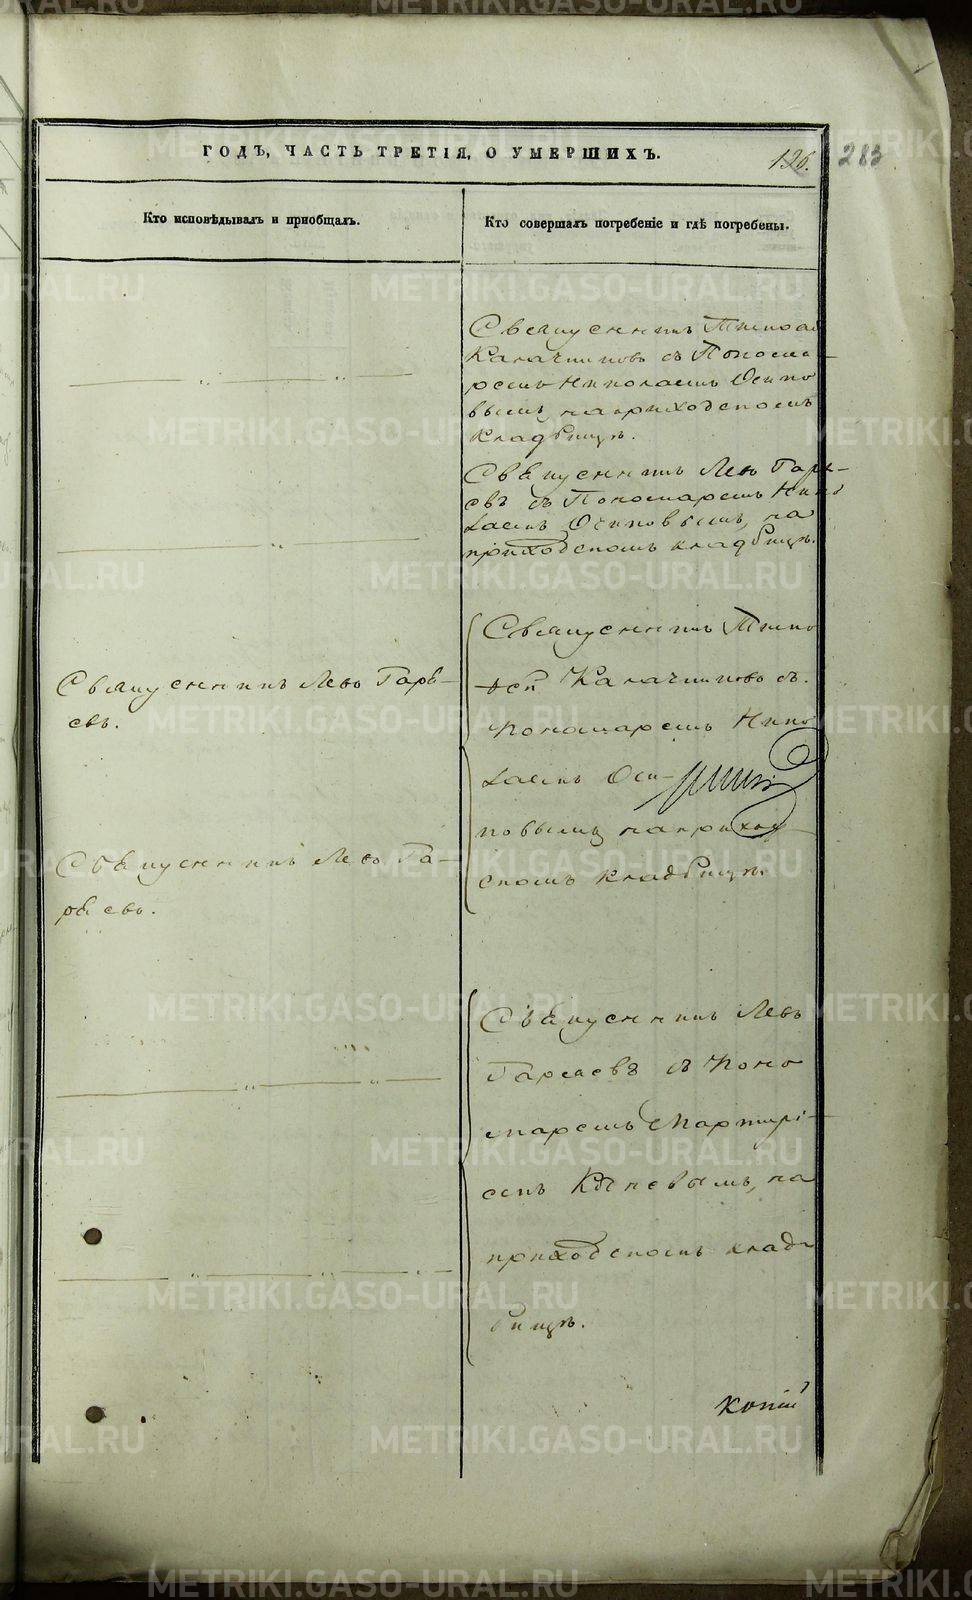 ГОДЪ, ЧАСТЬ ТРЕТІЯ, О УМЕРШИХЪ.
126. 283
Кто исповѣдывалъ и пріобщалъ.
Кто совершалъ погребеніе и гдѣ погребены.
Священникъ Тимоѳей
Калачниковъ съ Понома-
ремъ Николаемъ Осипо
вымъ, на приходскомъ
кладбищѣ.
Свѧщенникъ Левъ Гарѧ-
евъ съ Пономаремъ Нико
лаемъ Осиповымъ, на
приходскомъ кладбищѣ.
Священникъ Левъ Гаря-
евъ.
Свѧщенникъ Левъ Га-
рѧевъ.
Священникъ Тимо
ѳей Калачниковъ съ
Пономаремъ Нико
лаемъ Оси-
повымъ, на приход-
скомъ кладбищѣ.
Свѧщенникъ Левъ
Гаряевъ съ Поно
маремъ Мартирі-
емъ на
приходскомъ клад-
бищѣ.
METRIKI.GASO-URAL.RU